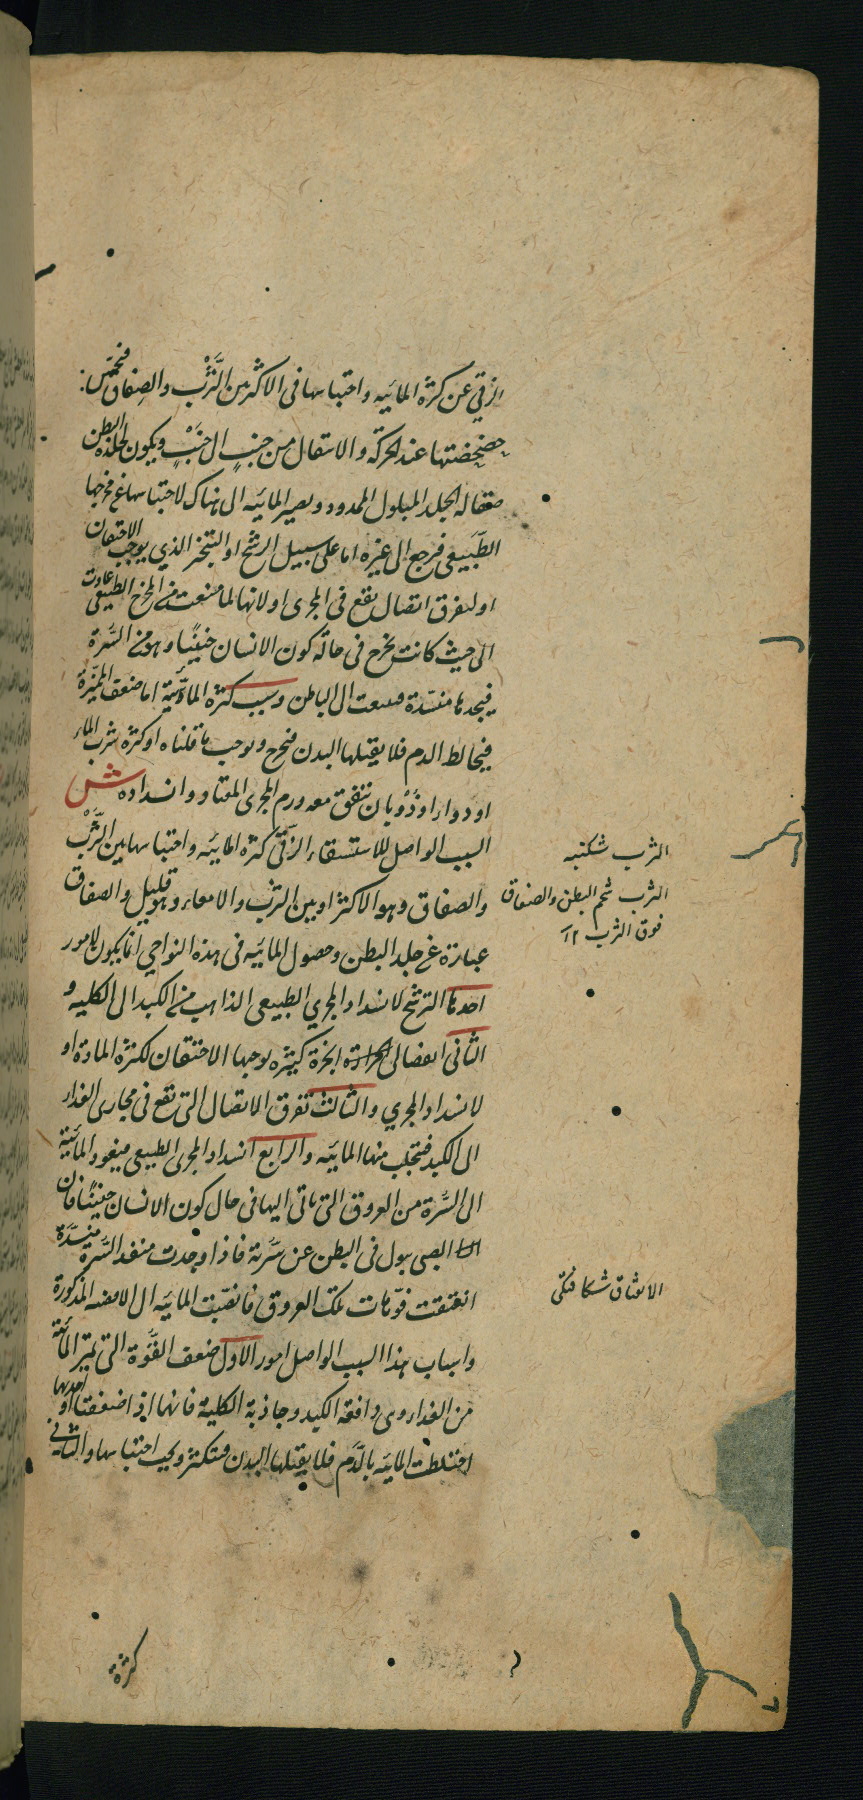 الزقي عن كثرة المائيه واحتباسها فى الاكثر بين الثَّرْب والصِفاق فتحس
خضخضتها عند الحركة والانتقال من جنبٍ الى جنبٍ ويكون لجلدة البطن
صقالة الجلد المبلول الممدود ويصير المائيه الى هناك لاحتباسها عن مخرجها
الطَّبيعى فرجع الى غيره اما على سبيل الرشح او التبخر الذي يوجب الاحتقان
او لتفرق اتصال يقع فى المجرى او لانها لما منعت من المخرج الطبيعى عادت
الى حيث كانت يخرج فى حالة كون الانسان جنينًا وهو من السَّرة
فيجدها منسّدة فسعت الى الباطن وسبب كثرة المائيّة اما ضعف المميّزة
فيخالط الدم فلا يقبلها البدن فتحرج ويوجب ما قلناه او كثرة شرب الماء
او دوار او ذَوَبان تتفق معه ورم المجرى المعتاد وانسداده ش
السبب الواصل للاستسقاء الزقّى كثرة المائيه واحتباسها بين الثَّرْب
والصفاق وهو الاكثر او بين الثرب والامعاء وهو قليل والصفاق
عبارة عن جلد البطن وحصول المائيه فى هذه النواحي انما يكون لامور
احدها الترشح لانسداد المجري الطبيعى الذاهب من الكبد الى الكليه و
الثانى انفصال الحرارة ابخرة كثيره يوجبها الاحتقان لكثرة المادة او
لانسداد المجري والثالث تفرق الاتصال التى تقع فى مجارى الغذاء
الى الكبد فتجلب منها المائيه والرابع انسداد المجرى الطبيعى فيعود المائية
الى السَّرة من العروق التى ياتى اليها فى حال كون الانسان جنينًا فان
الصبى يبول فى البطن عن سَرّته فاذا وجدت منفد السَّرة منسدّة
انفتقت فوّهات تلك العروق فانصبّت المائيه الى الافضيه المذكورة
واسباب هذا السبب الواصل امور الاول ضعف القُوَّة التى تميز المائية
من الغذاء وهى دافعة الكبد وجاذبة الكلية فانهما اذا ضعفتا او احديهما
اختلطت المائيه بالدَّم فلا يقبلها البدن فتكثر ويجب احتباسها والثانى
كثرة
الثرب شكنبه
الثرب شحم البطن والصفاق
فوق الثرب ١٢
الانفتاق شكافتگى